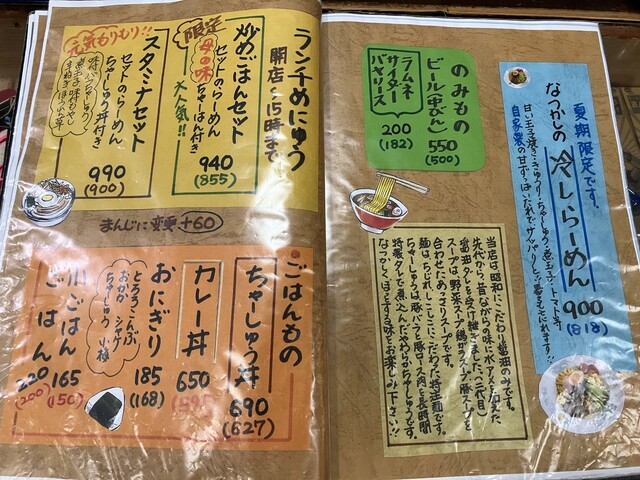 夏期限定です。
なつかしの冷しらーめん 900
(818)
自家製の甘ずっぱいたれで
のみもの
ビール(中びん) 550
(500)
ラムネ
サイダー
バヤリース
200
(182)
当店は昭和にこだわり醤油のみです。
先代から、昔ながらの味にボアスを加えた
醤油タレを受け継ぎました。(二代目)
スープは、野菜スープ、鶏ガラスープ、豚スープを
合わせたあっさりスープです。
麺は、ちぢれ、しこしこにこだわった特注麺です。
ちゃーしゅうは豚バラと豚ロース肉を長時間
特製タレで煮込んだやわらかちゃーしゅうです。
なつかしく、ほっとする味をお楽しみ下さい!!
ランチめにゅう
開店~15時まで
限定
母の味
炒めごはんセット 940
(855)
セットのらーめん
ちゃーはん付き
大人気!!
元気もりもり!!
スタミナセット 990
(900)
セットのらーめん
ちゃーしゅう丼付き
まんじに変更 +60
ごはんもの
ちゃーしゅう丼 690
(627)
カレー丼 650
(595)
おにぎり 185
(168)
とろろこんぶ
おかか シャケ
ちゃーしゅう 小梅
小ごはん 165
(150)
ごはん 220
(200)